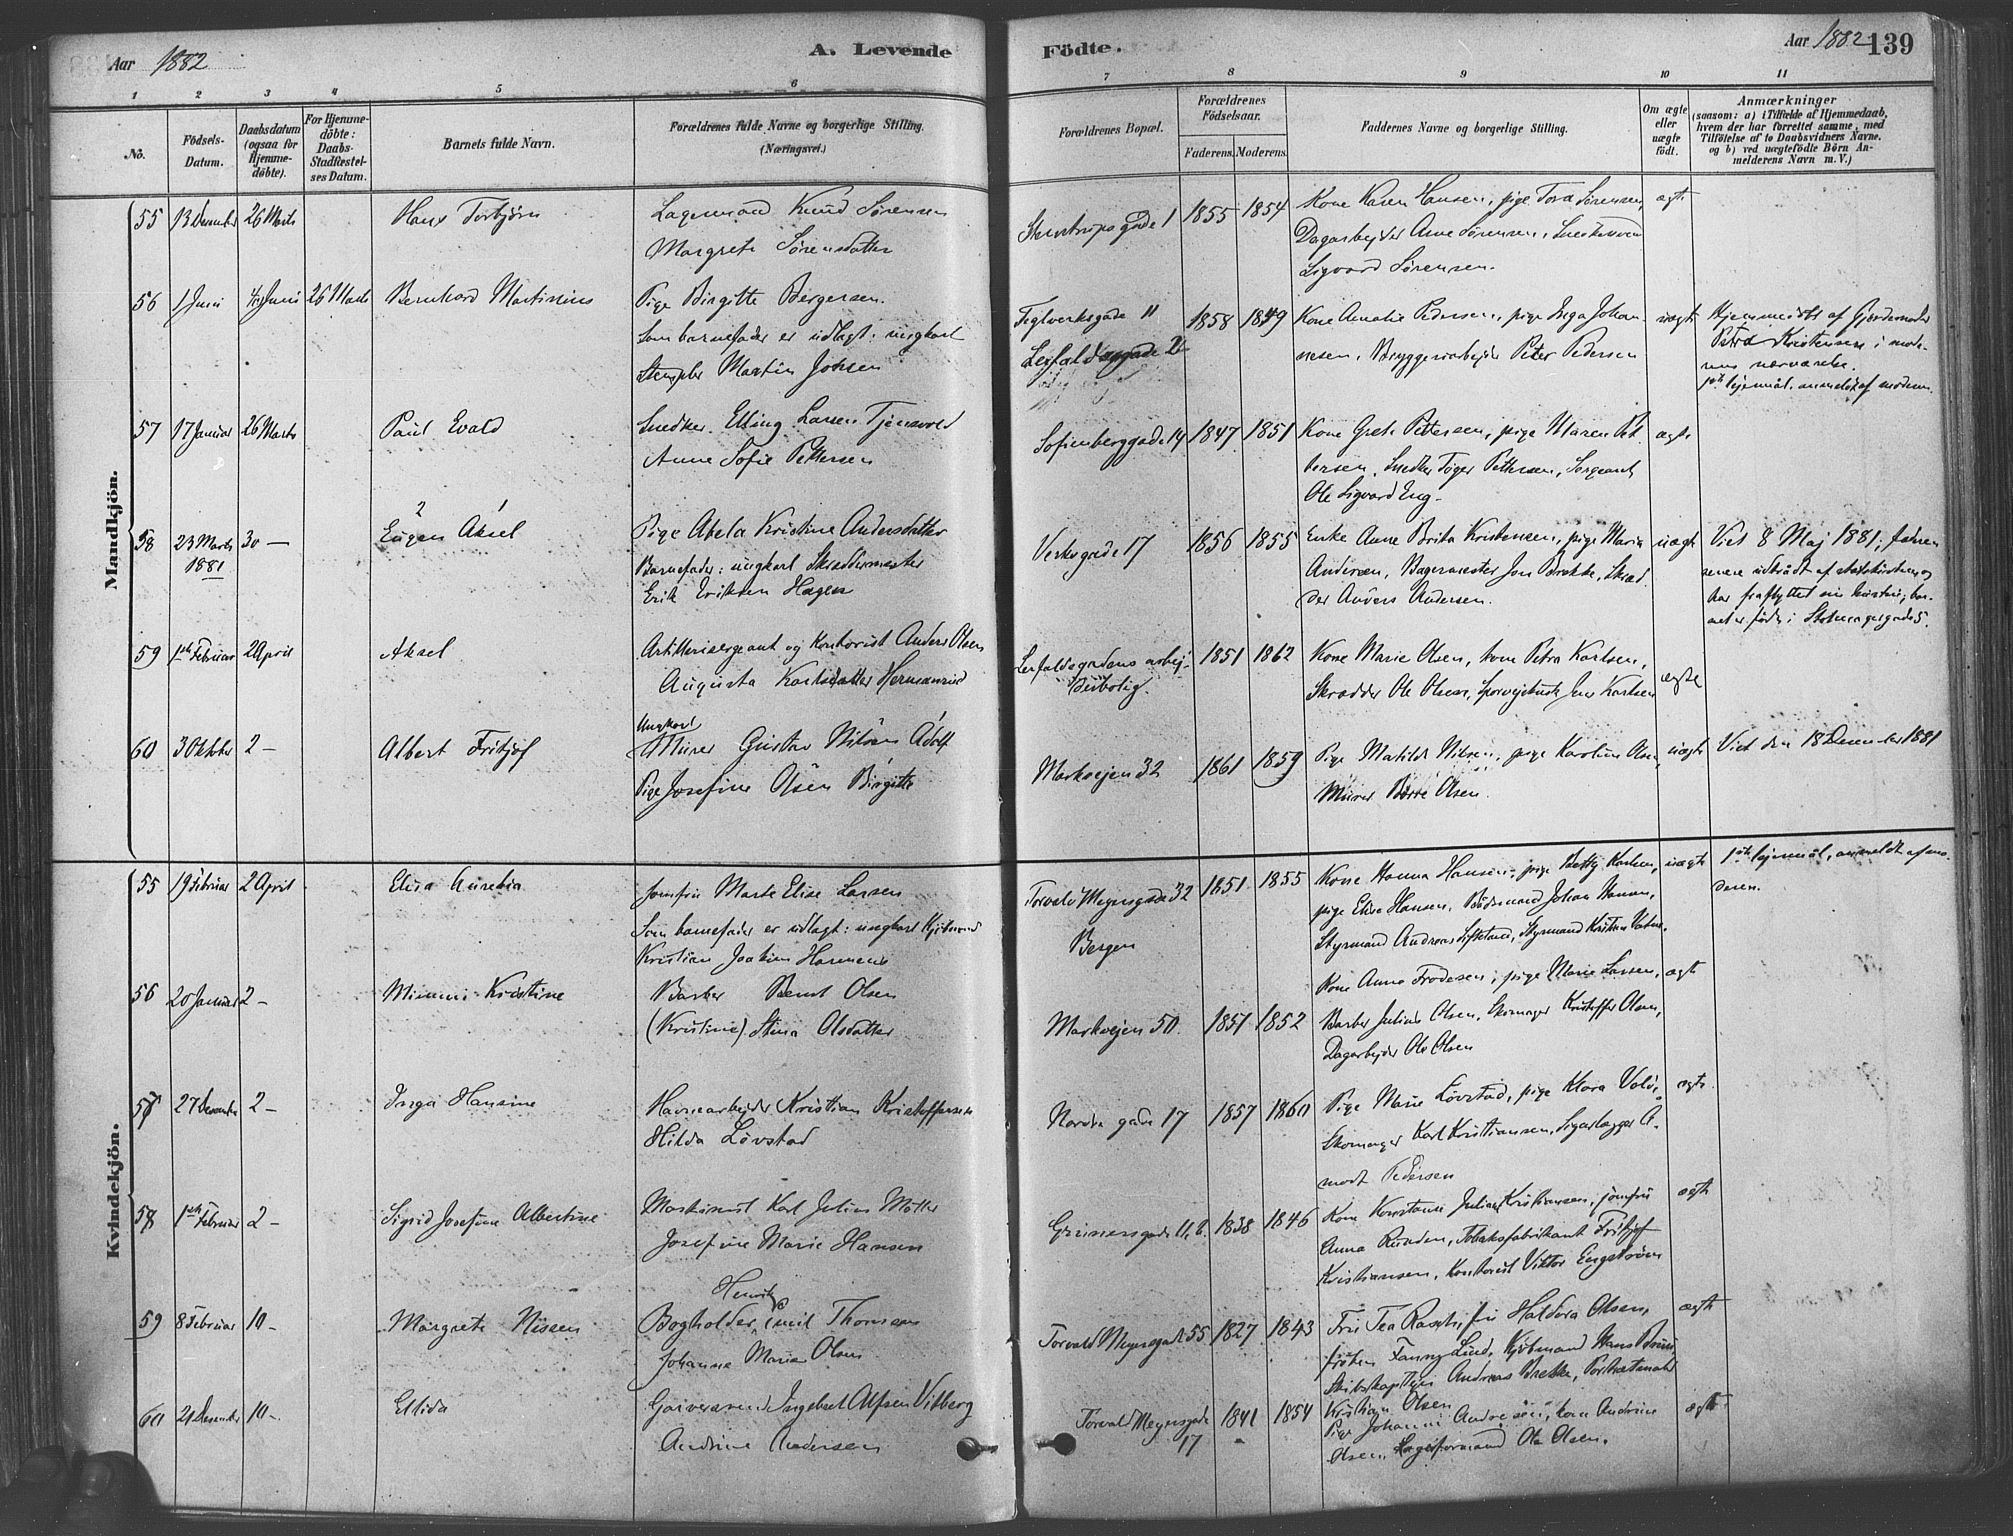 Aar 1882
A. Levende
Födte.
Aar 1882
139
1 2 3 4 5 6 7 8 9 10 11
No.
Födsels-
Datum.
Daabsdatum
(ogsaa for
Hjemme-
döbte).
For Hjemme-
döbte:
Daabs-
Stadfæstel-
ses Datum.
Barnets fulde Navn.
Forældrenes fulde Navne og borgerlige Stilling.
(Næringsvei.)
Forældrenes Bopæl.
Forældrenes
Födselsaar.
Faderens. Moderens.
Faddernes Navne og borgerlige Stilling.
Om ægte
eller
uægte
født.
Anmærkninger
(saasom: a) i Tilfælde af Hjemmedaab,
hvem der har forrettet samme, med
Tilföielse af to Daabsvidners Navne.
og b) ved uægtefödte Börn An-
melderens Navn m. V.)
Mandkjön.
55 13 December 26 Marts Hans Torbjörn
Knud Sörensen
Margrete Sörensdatter
1855 1854
Kone Karen Hansen, pige Tora Sörensen,
Dagarbejder Arne Sörensen,
Sigvard Sörensen.
ægte
56 1 Juni Juni 26 Marts Bernhard Martinius
Pige Birgitte Bergersen.
Som barnefader er udlagt: ungkarl
Martin Johsen
Teglverksgade 11
1858 1849
Kone Amalie Pedersen, pige Inga Johan-
nesen, Bryggeriarbejder Peter Pedersen
uægte
Hjemmedöbt af Gjordemoder
Petra Kristensen i mode-
rens nærværelse.
1ste lejermål, anmeldt af moderen
57 17 Januar 26 Marts Paul Evald
Snedker Elling Larsen
Anne Sofie Pettersen
Sofienberggade 14 1847 1851
Kone Grete Pettersen, pige Maren Pet-
tersen, Snedker Töger Pettersen, Sergeant
Ole Sigvard Eng.
ægte
58 23 Marts 30 —
1881
Eugen Aksel
Pige Abela Kristine Andersdatter
Barnefader: ungkarl Skræddermester
Erik Eriksen Hagen
Verksgade 17 1856 1855
Enke Anne Brita Kristensen, pige Maria
Andersen, Bagermester Jon Brekke, Skræd-
der Anders Andersen.
uægte
Viet 8 Maj 1881; faderen
senere udtrådt af statskirken og
har fraflyttet sin hustru; bar-
net er född i Stolmagergade 5.
59 1ste Februar 2 April Aksel
Artillerisergeant og Kontorist Anders Olsen
Augusta Karlsdatter
1851 1862
Kone Marie Olsen, kone Petra Karlsen,
Skrædder Ole Olsen, Jens Karlsen
ægte
60 3 Oktober 2 — Albert Fritjof
Ungkarl
Murer Gustav Nilsen Adolf
Pige Josefine Olsen Birgitte
Markvejen 32 1861 1859
Pige Matilde Nilsen, pige Karoline Olsen,
Murer Olsen.
uægte
Viet den 18 December 1881
Kvindekjön.
55 19 Februar 2 April Elisa
Jomfru Marte Elise Larsen
Som barnefader er udlagt: ungkarl Kjöbmand
Kristian Joakim
Torvald Meyersgade 32
Bergen
1851 1855
Kone Hanna Hansen, pige Betty Karlsen,
pige Elise Hansen, Johan Hansen,
Styrmand Andreas Styrmand Kristen
uægte
1ste lejermål, anmeldt af mo-
deren.
56 20 Januar 2 — Kristine
Barber Bernt Olsen
(Kristine) Stina Olsdatter
Markvejen 50. 1857 1852
Kone Anna Frodesen, pige Marie Larsen,
Barber Julius Olsen, Skomager Kristoffer Olsen,
Dagarbejder Ole Olsen
ægte
57 27 December 2 — Inga Hansine
Havnearbejder Kristian Kristoffersen
Hilda Lövstad
Nordre gade 17 1857 1860
Pige Marie Lövstad, pige Klara
Skomager Karl Kristiansen, A-
modt Pedersen
ægte
58 1ste Februar 2 — Sigrid Josefine Albertine
Maskinist Karl Julius Möller
Josefine Marie Hansen
Grünersgade 11, b. 1838 1846
Kone Konstanse Juliane Kristiansen, jomfru
Anna Tobaksfabrikant Fritjof
Kristiansen, Kontorist Viktor Engström
ægte
59 8 Februar 10 — Margrete Nissen
Henrik
Bogholder Emil Thomsen
Johanne Marie Olsen
Torvald Meyersgade 55 1827 1843
Fru Tea Rasch, fru Haldora Olsen,
fröken Fanny Lind, Kjöbmand Hans
Skibskaptein Andreas Brekke, Portrætmaler
Kristian Olsen
ægte
60 21 December 10 — Ellida
Garversvend Ingebret Alfsen Vitberg
Andrine Andersen
Torvald Meyersgade
17
1841 1854
Pige Johanne Andresen, kone Andrine
Olsen, Ole Olsen.
ægte